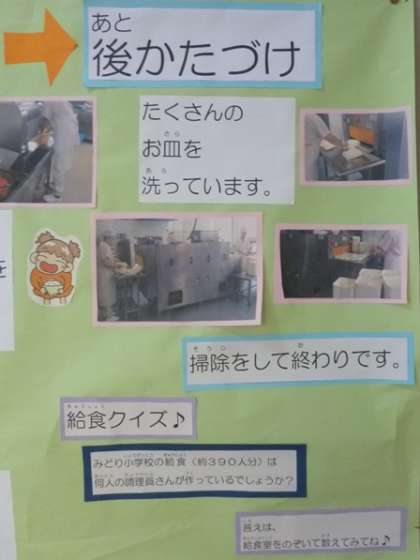 後かたづけ
たくさんの
お皿を
洗っています。
を
掃除をして終わりです。
給食クイズ♪
みどり小学校の給食（約３９０人分）は
何人の調理員さんが作っているでしょうか？
答えは、
給食室をのぞいて数えてみてね♪